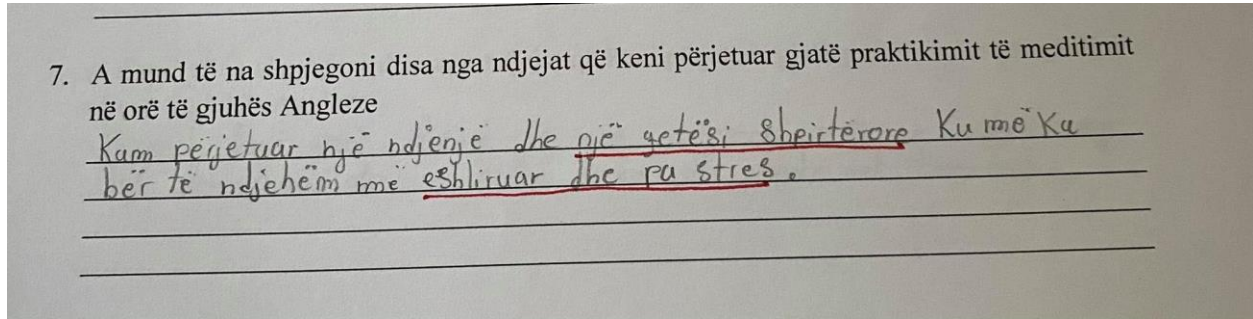 7. A mund të na shpjegoni disa nga ndjejat që keni përjetuar gjatë praktikimit të meditimit
në orë të gjuhës Angleze
Kam përjetuar një ndjenjë dhe një qetësi Shpirtërore Ku më Ka
bër të ndjehëm më eshliruar dhe pa stres.